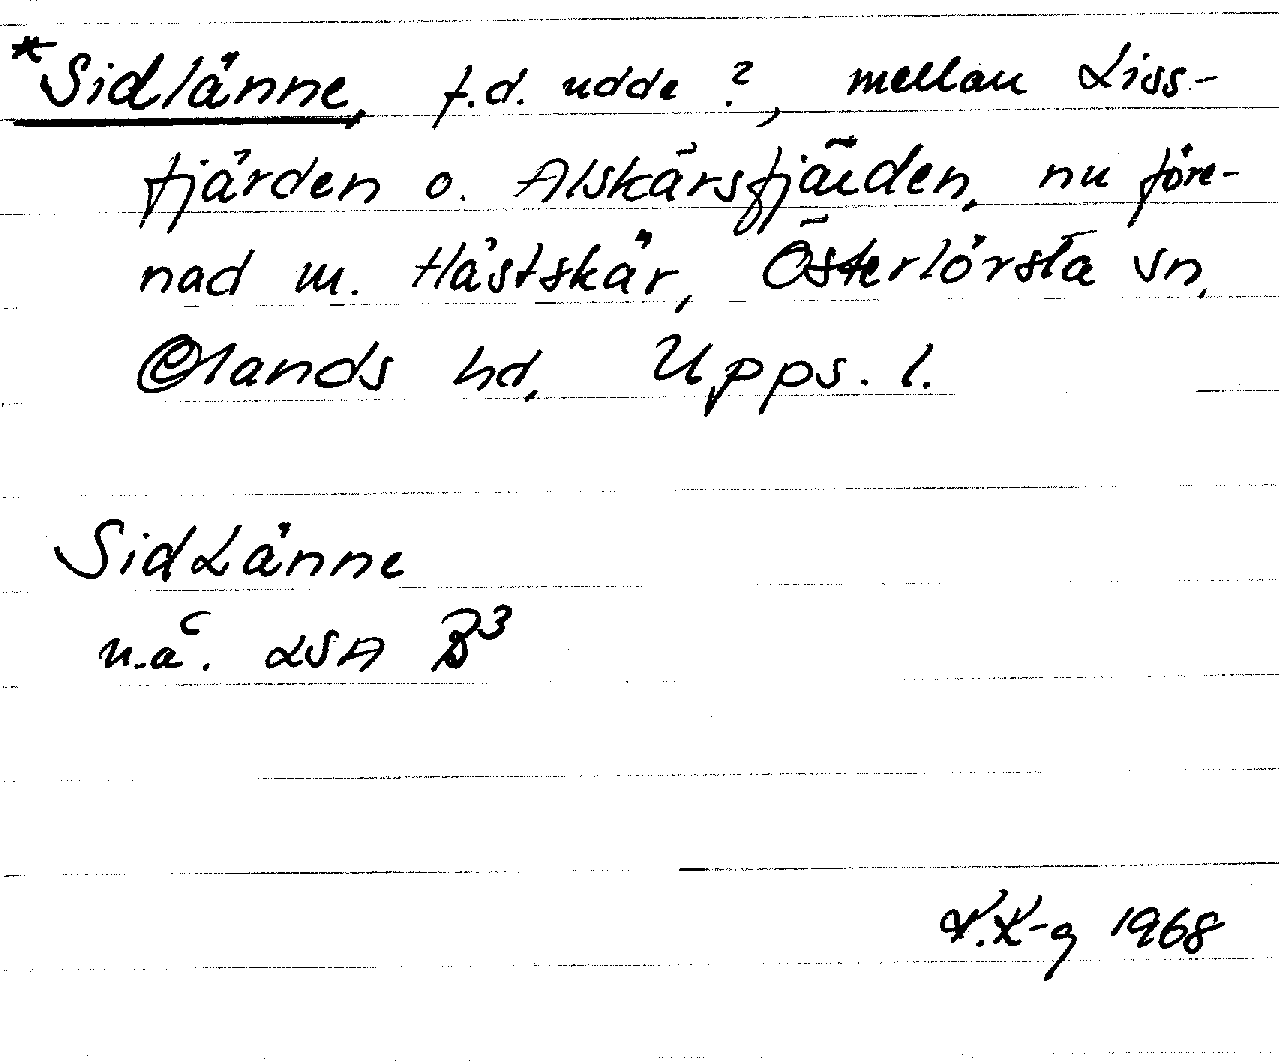 *Sidlänne, f.d. udde ?, mellan Liss-
fjärden o. Alskärsfjärden, nu före-
nad m. Hästskär, Österlövsta sn,
Olands hd, Upps. l.
SidLänne
u.å. LSA B³
1968